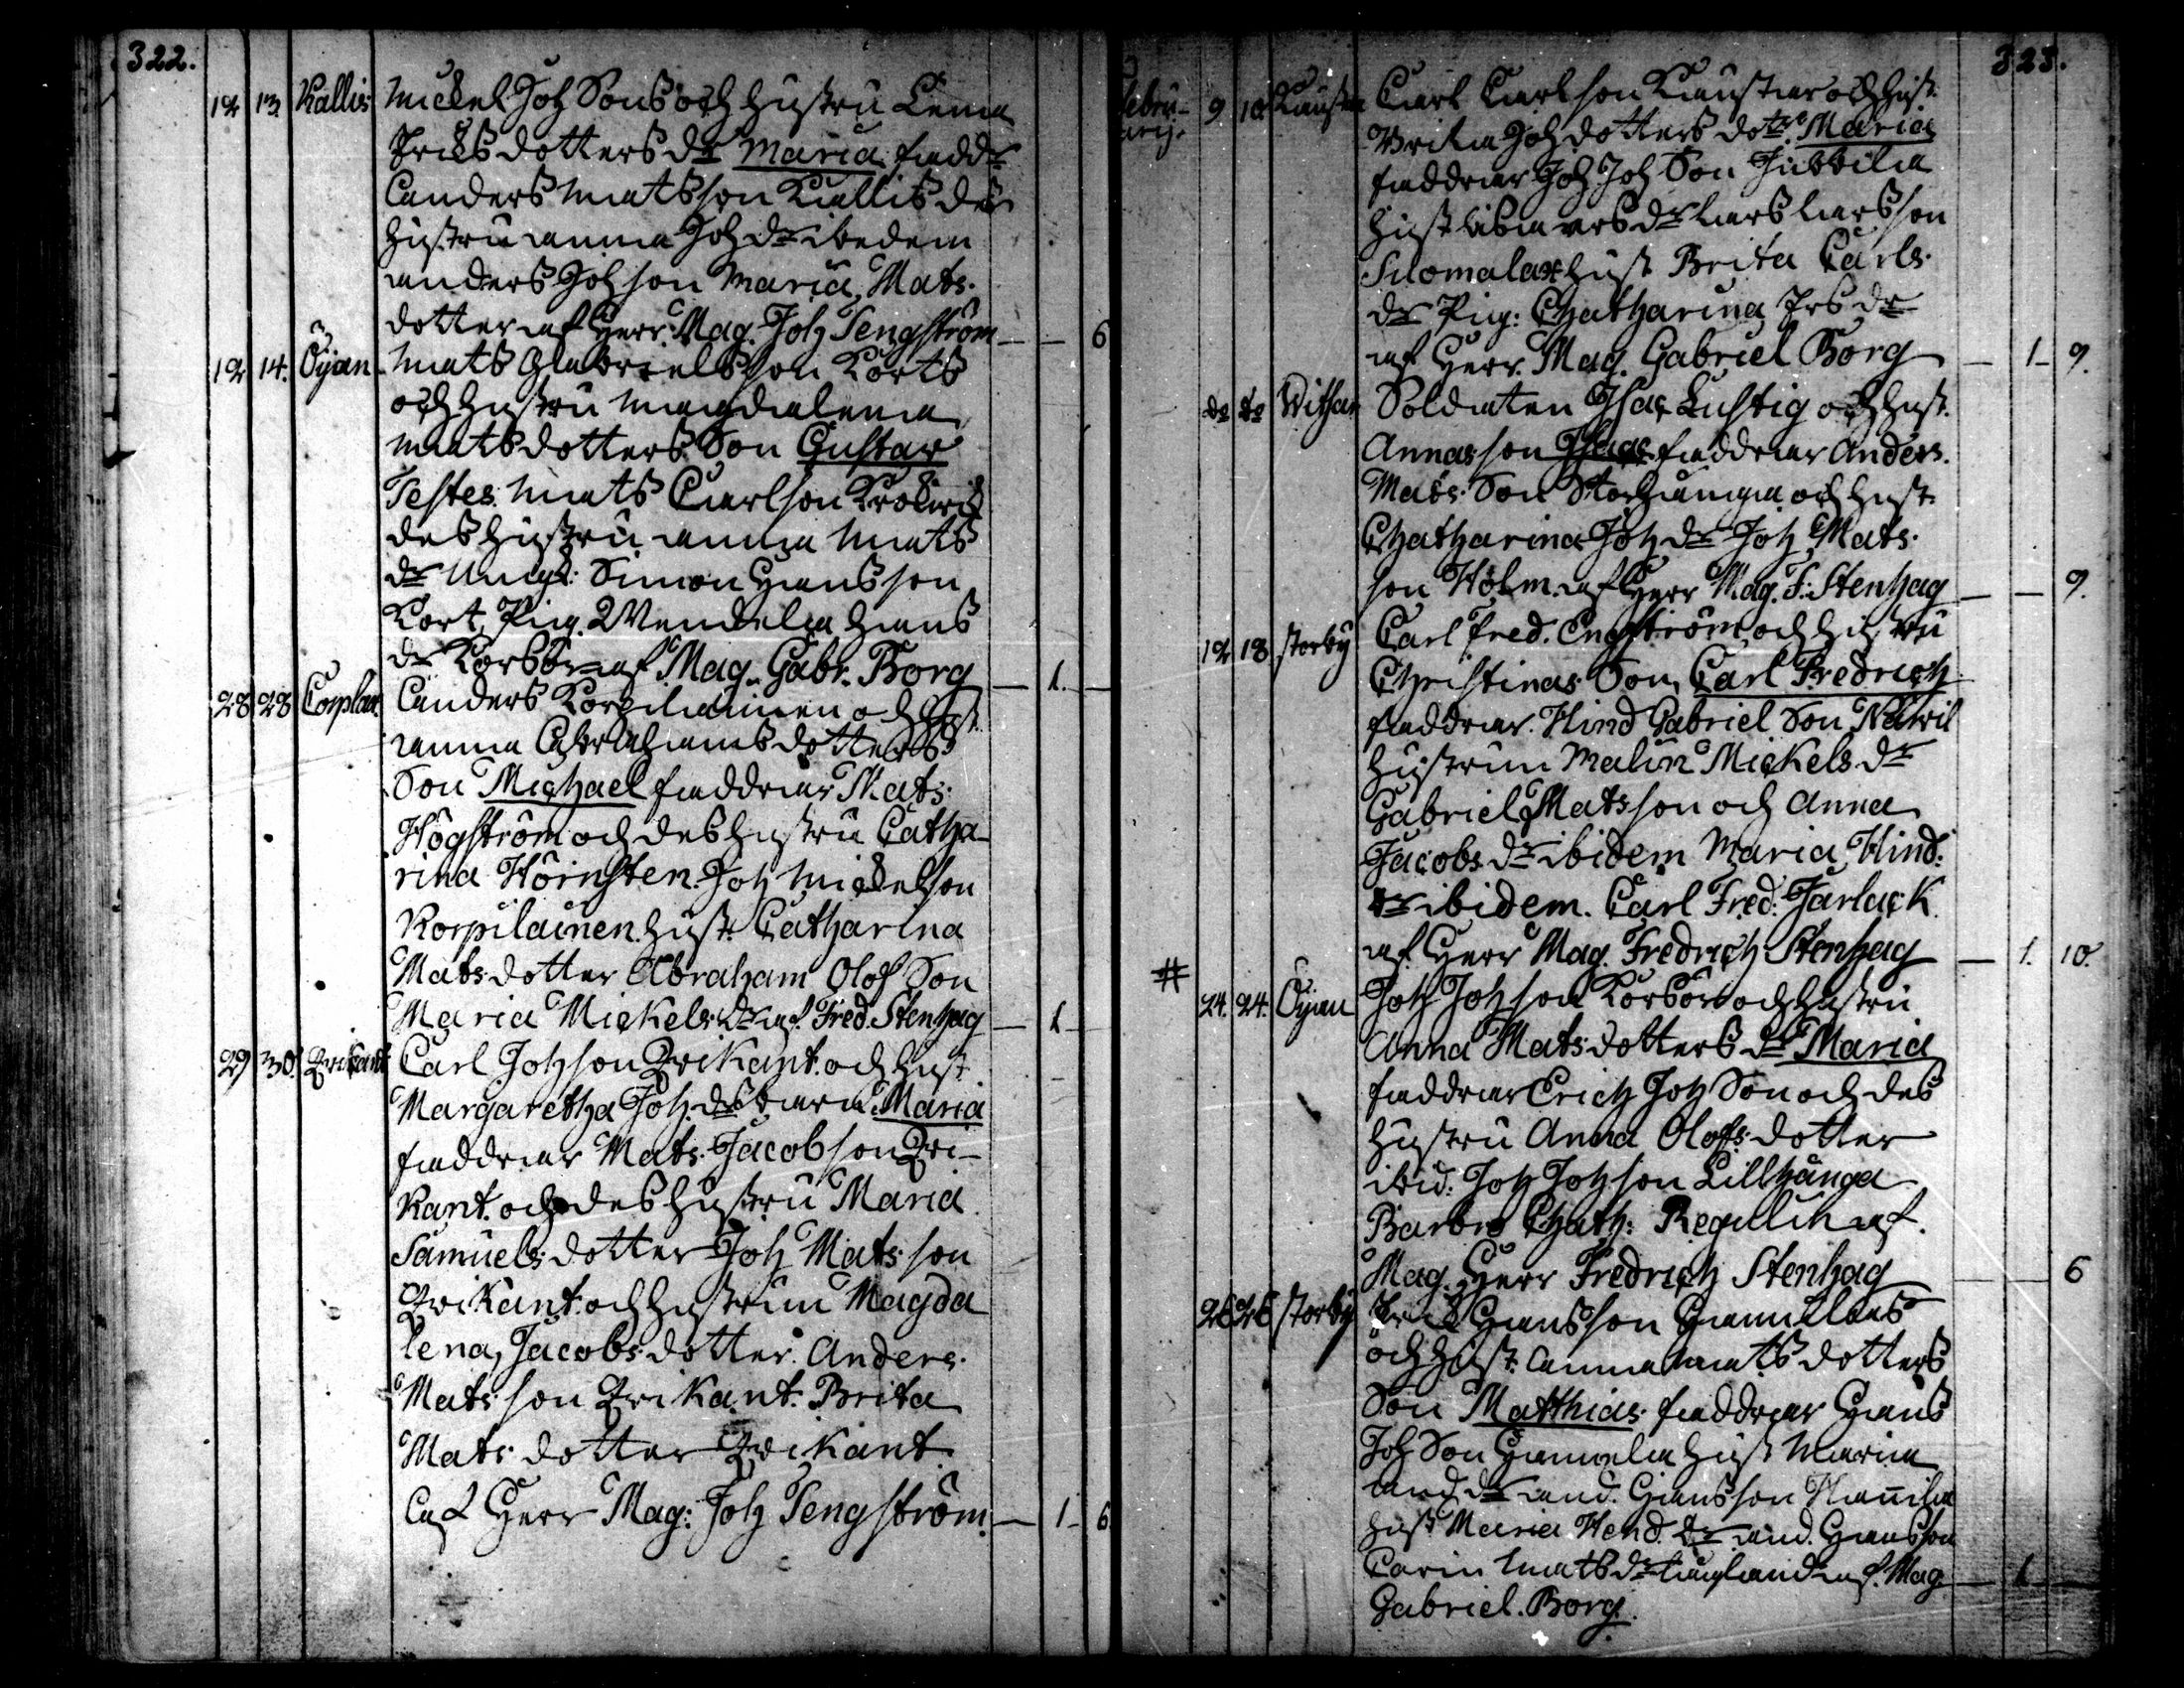 322.
12 13. Kallis Mickel Joh Sons och hustru Lena
Ericsdotters dr Maria faddr
Anders Matsson Kallis des
hustru anna Joh dr ibedem
anders Joh son Maria Mats.
dotter af Herr. Mag. Joh Tengström — — 6
12 14. Öijan Mats Gabrielsson Korts
och hustru Magdalena
Matsdotters Son Gustav
Testes. Mats Carlson
des hustru anna Mats
dr Simon Hansson
Kort, Pig. Wendela Hans
dr Korsbr af Mag. Gabr. Borg — 1. —
28 28 Corplax Anders Korpilainen och Hust.
anna Abrahamsdotters
Son Michael faddrar Mats.
Högström och des hustru Catha-
rina Hörnsten. Joh Mickelson
Korpilainen. hust. Catharina
Matsdotter Abraham Olof Son
Maria Mickels dr af. Fred. Stenhag — 1 —
29 30. Qvikant Carl Johson Qvikant. och Hust
Margaretha Joh. ds barn. Maria
faddrar Mats. Jacobson Qvi-
kant. och des hustru Maria
Samuels. dotter Joh Mats. son
Qvikant. och hustrun Magda
lena, Jacobs. dotter. Anders.
Mats. son Qvikant. Brita
Mats. dotter Qvikant.
Af Herr Mag: Joh Tengström. — 1 — 6
323.
Febru-
arij. 9 10 Kaustar Carl Carlson Kaustar och Hust.
Brita Joh dotters dotr. Maria
faddrar Joh Joh Son Jubbila
hust Lisa dr Lars Larsson
Silomalax hust Brita Carls.
dr Pig: Chatharina Ers dr
af Herr. Mag. Gabriel Borg — 1 — 9.
do do Witsar Soldaten Isac Lustig och hust.
Annas son Isaac faddrar Anders.
Mats. Son Storhanga och hust.
Chatharina Joh dr Joh Mats.
son Holm. af Herr Mag. F: Stenhag — — 9.
12 18 storby Carl Fred. Engström och hustru
Christinas Son, Carl Fredrich
faddrar. Hind Gabriel Son
hustrun Malin Mickels dr
Gabriel Matsson och Anna
Jacobs dr ibidem Maria, Hind.
dr ibidem. Carl Fred: Jarlack
af. Herr Mag. Fredrich Stenhag — 1. 10.
#
24. 24. Öijan Joh Johson Korsbr och hustru
Anna Matsdotters dr Maria
faddrar Erich Joh Son och des
hustru Anna Olofs. dotter
ibid: Joh Johson Lillhånga
Barbro Chath: Regellin af.
Mag. Herr Fredrich Stenhag — — 6
26 26 storby Erik Hansson
och Hust: Anna Matsdotters
Son Matthias. faddrar Hans
Joh Son hust Maria
and dr and. Hansson
hust Maria Hend. dr and. Hansson
Carin Mats dr af. Mag. — 1 —
Gabriel. Borg.